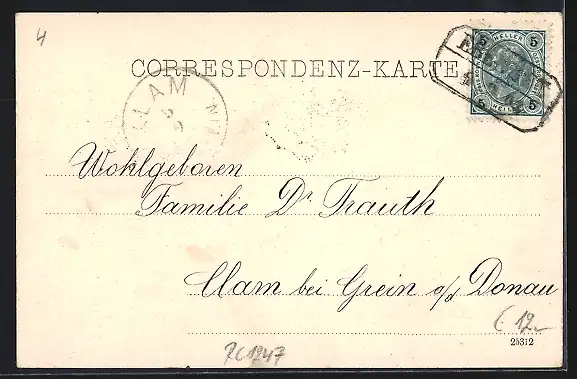 4
CORRESPONDENZ-KARTE
5 HELLER 5
5 HELLER 5
CLAM
Wohlgeboren
Familie Dr Trauth
Clam bei Grein a/d Donau
(12-
25312